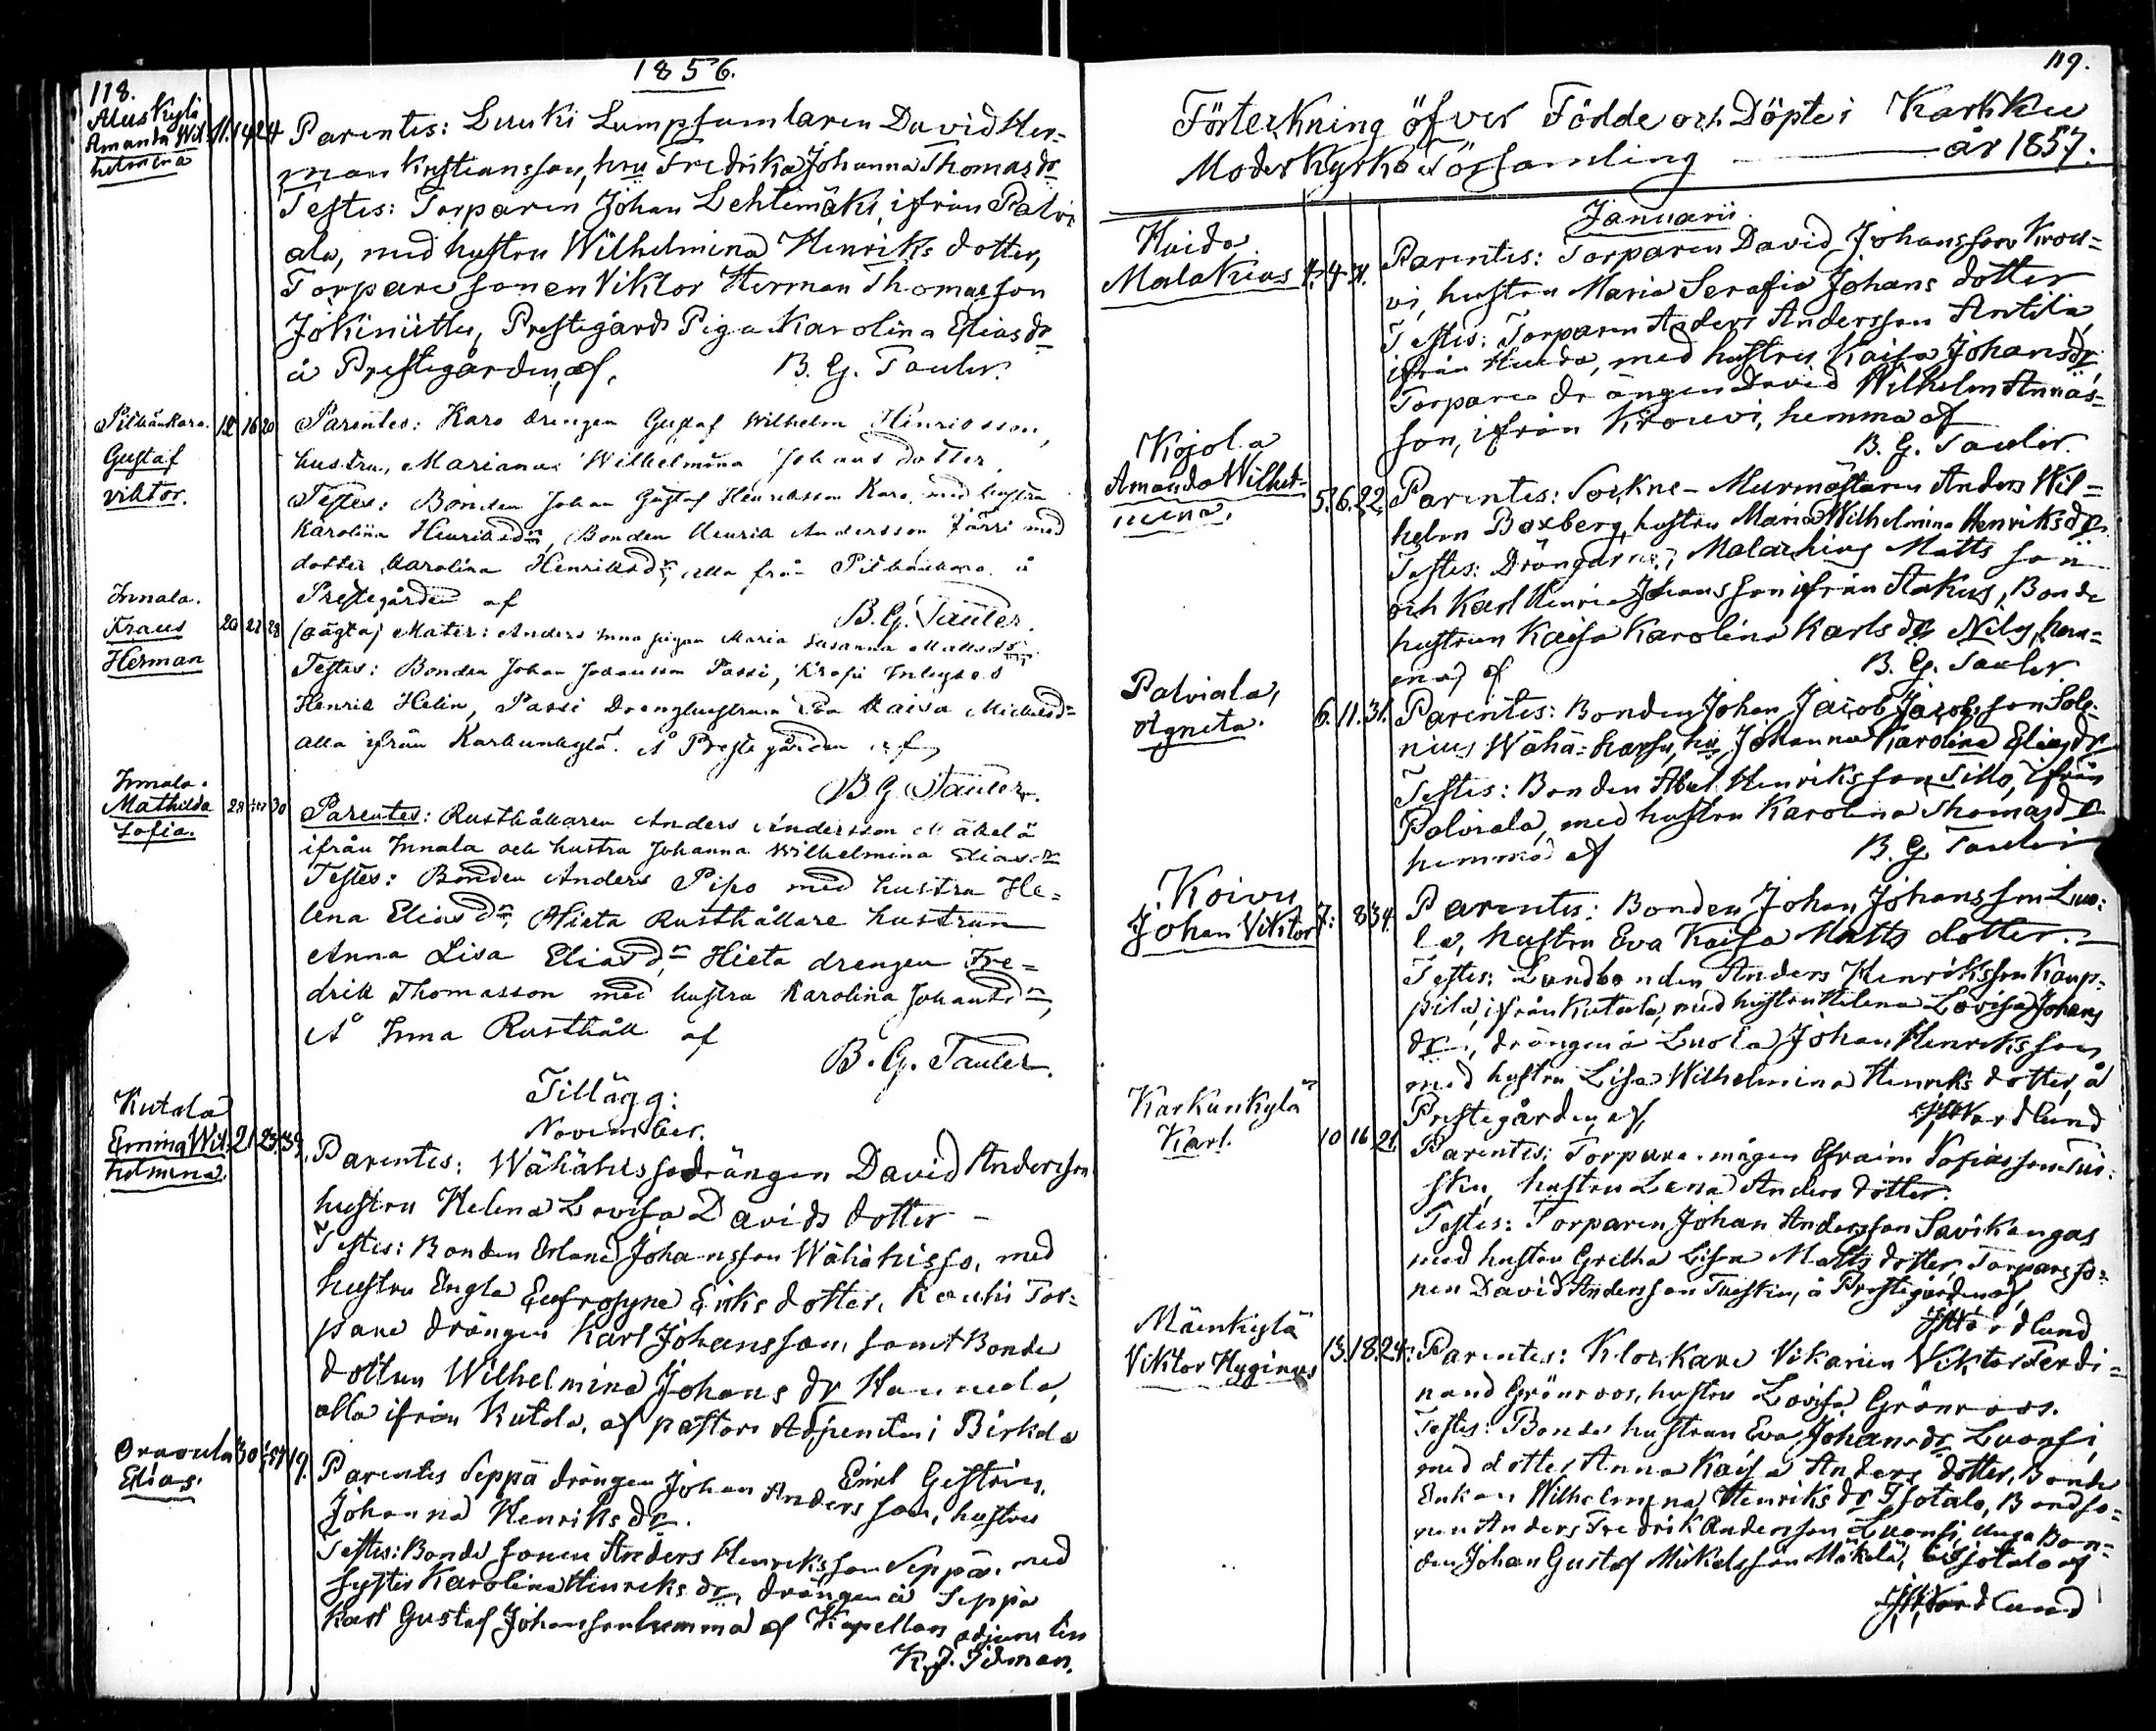 118.
1856.
Aluskylä
Amanda Wil-
helmina
11. 14 24
Parentes: Luuki Lumpsamlaren David Her-
man Kristiansson, hru Fredrika Johanna Thomasdr
Testes: Torparen Johan Lehtimäki, ifrån Palvi
ala, med hustru Wilhelmina Henriks dotter,
Torpare sonen Viktor Herman Thomasson
Jokiniittu, Prestegårds Piga Karolina Eliasdr
å Prestegården, af. B. G. Tauler.
Gustaf
Viktor.
12 16 20
Parentes: Karo drengen Gustaf Wilhelm Henricsson,
hustru, Mariana Wilhelmina Johans dotter.
Testes: Bonden Johan Gustaf Henriksson Karo, med hustru
Karolina Henriksdr, Bonden Henrik Andersson Järri med
dotter Karolina Henriksdr, alla från å
Prestegården af B. G. Tauler.
Innala.
Frans
Herman
20 27 28
(oägta) Mater: Anders Inna pigan Maria Susanna Mattsdr
Testes: Bonden Johan Johansson Passi, Inhyses
Henrik Helin, Passi Drenghustrun Eva Kaisa Michelsd
alla ifrån Karkunkylä. Å Prestegården af
B. G. Tauler.
Innala.
Mathilda
Sofia.
28 30
Parentes: Rusthållaren Anders Andersson Mäkelä
ifrån Innala och hustru Johanna Wilhelmina Eliasdr
Testes: Bonden Anders Pipo med hustru He-
lena Eliasdr, Hieta Rusthållare hustrun
Anna Lisa Eliasdr, Hieta drengen Fre-
drik Thomasson med hustru Karolina Johansdr,
Å Inna Rusthåll af
B. G. Tauler.
Tillägg:
November.
Kutala
Emma Wil-
helmina.
21 23. 39.
Parentes: Wähähissodrängen David Andersson
hustru Helena Lovisa Davids dotter –
Testes: Bonden Erland Johansson Wähähisso, med
hustru Engla Eufrosyne Eriks dotter, Rauhi Tor-
pare drängen Karl Johansson, samt Bonde
dottren Wilhelmina Johans dr Hannula,
alla ifrån Kutala, af pastors Adjunkten i Birkala
Emel Gestrin.
Elias.
30 19.
Parentes Seppä drängen Johan Andersson, hustru
Johanna Henriksdr.
Testes: Bonde sonen Anders Henriksson Seppä, med
syster Karolina Henriks dr, drängen å Seppä
Karl Gustaf Johansson hemma af Kapellans adjuncten
K. J. Idman.
119.
Förteckning öfver Födde och Döpte i Karkku
Moderkyrko Församling — år 1857.
Januarii.
Huida
Malakias
1. 4 31.
Parentes: Torparen David Johansson Krou-
vi, hustru Maria Serafia Johans dotter
Testes: Torparen Anders Andersson Antila
ifrån Huida, med hustru Kaisa Johansdr,
Torpare drängen David Wilhelm Annäs-
son, ifrån Krouvi, hemma af
B. G. Tauler.
Kojola
Amanda Wilhel-
mina.
5. 6. 22.
Parentes: Sockne-Murmästaren Anders Wil-
helm Boxberg, hustru Maria Wilhelmina Henriksdr.
Testes: Drängarne, Malachias Matts son
och Karl Henric Johansson ifrån Aakus, Bonde
hustrun Kaisa Karolina Karls dr Nily, hem-
ma, af B. G. Tauler
Palviala,
Agneta.
6. 11. 31.
Parentes: Bonden Johan Jacob Jacobsson Sole-
nius Wähä-hru Johanna Karolina Eliasdr
Testes: Bonden Abel Henriksson Sillo, ifrån
Palviala, med hustru Karolina Thomasdr
hemma af B. G. Tauler
Koivu
Johan Viktor
7. 8 34.
Parentes: Bonden Johan Johansson Luo-
la, hustru Eva Kaisa Matts dotter. –
Testes: Landbonden Anders Henriksson Kaup-
pila, ifrån Kutala, med hustru Helena Lovisa Johans
dr, drängen å Luola Johan Henriksson
med hustru Lisa Wilhelmina Henriks dotter, å
Prestegården, af, Nordlund
Karkunkylä
Karl.
10 16 21.
Parentes: Torpare mågen Efraim Tofiasson Tui-
sku, hustru Lena Anders dotter.
Testes: Torparen Johan Andersson Savikangas
med hustru Gretha Lisa Matts dotter, Torpare so-
nen David Andersson Tuisku, å Prestegården af,
Nordlund
Mäenkylä
Viktor Hyginus
13. 18. 24.
Parentes: Klockare Vikarien Viktor Ferdi-
nand Grönroos, hustru Lovisa Grönroos.
Testes: Bonde hustrun Eva Johansdr Luonsi,
med dotter Anna Kaisa Anders dotter, Bonde
Enkan Wilhelmina Henriks dr Isotalo, Bondso-
nen Anders Fredrik Andersson Luonsi, unga Bon-
den Johan Gustaf Mickelsson Mäkelä, Isotalo af
Nordlund